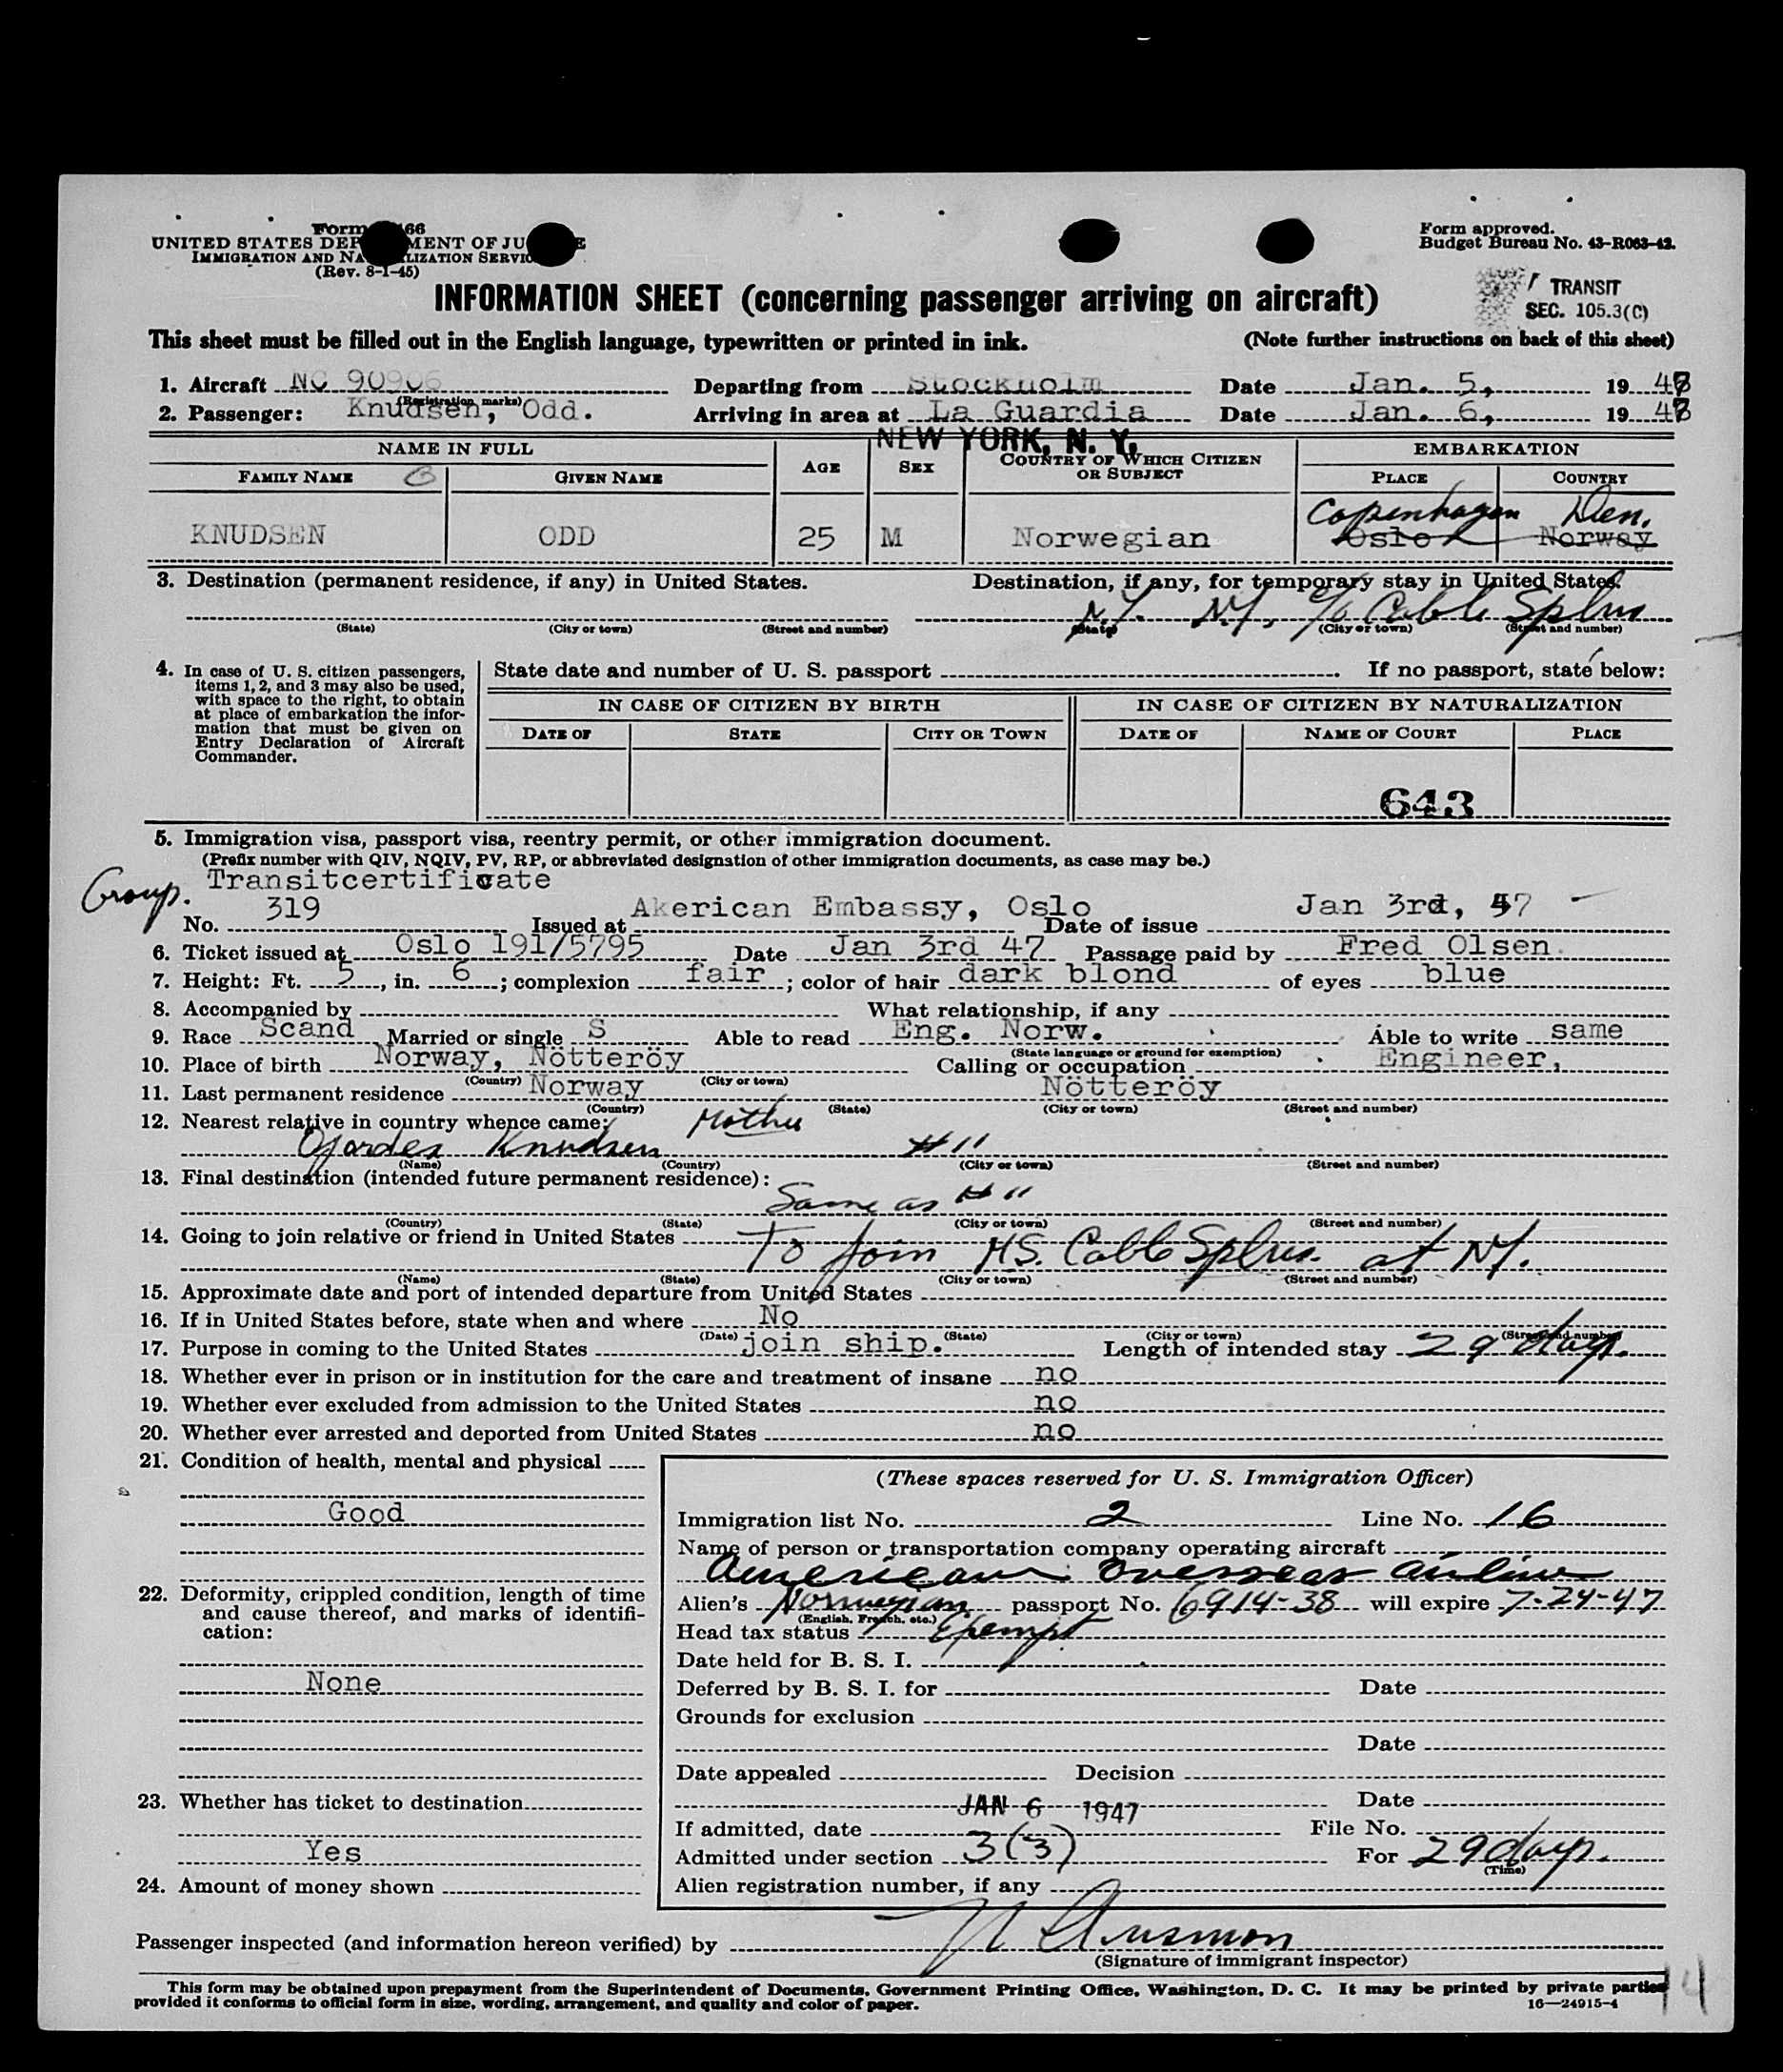 Form 66
UNITED STATES DEP MENT OF JU E
IMMIGRATION AND NA LIZATION SERVIC
(Rev. 8-1-45)
Form approved.
Budget Bureau No. 43-R063-42.
INFORMATION SHEET (concerning passenger arriving on aircraft)
TRANSIT
SEC. 105.3(C)
This sheet must be filled out in the English language, typewritten or printed in ink. (Note further instructions on back of this sheet)
1. Aircraft NC 90906 Departing from Stockholm Date Jan. 5, 19 47
(Registration marks)
2. Passenger: Knudsen, Odd. Arriving in area at La Guardia Date Jan. 6, 19 47
NEW YORK, N. Y.
NAME IN FULL AGE SEX COUNTRY OF WHICH CITIZEN OR SUBJECT EMBARKATION
FAMILY NAME GIVEN NAME PLACE COUNTRY
Copenhagen Den.
KNUDSEN ODD 25 M Norwegian Oslo Norway
3. Destination (permanent residence, if any) in United States. Destination, if any, for temporary stay in United States.
N.Y. N.Y. c/o Cable Splus
(State) (City or town) (Street and number) (State) (City or town) (Street and number)
4. In case of U. S. citizen passengers, items 1, 2, and 3 may also be used, with space to the right, to obtain at place of embarkation the information that must be given on Entry Declaration of Aircraft Commander.
State date and number of U. S. passport . If no passport, state below:
IN CASE OF CITIZEN BY BIRTH IN CASE OF CITIZEN BY NATURALIZATION
DATE OF STATE CITY OR TOWN DATE OF NAME OF COURT PLACE
643
5. Immigration visa, passport visa, reentry permit, or other immigration document.
(Prefix number with QIV, NQIV, PV, RP, or abbreviated designation of other immigration documents, as case may be.)
Group. Transitcertificate
No. 319 Issued at Akerican Embassy, Oslo Date of issue Jan 3rd, 47
6. Ticket issued at Oslo 191/5795 Date Jan 3rd 47 Passage paid by Fred Olsen.
7. Height: Ft. 5, in. 6; complexion fair; color of hair dark blond of eyes blue
8. Accompanied by What relationship, if any
9. Race Scand Married or single S Able to read Eng. Norw. Able to write same
(State language or ground for exemption)
10. Place of birth Norway, Nötteröy Calling or occupation Engineer,
(Country) (City or town)
11. Last permanent residence Norway Nötteröy
(Country) (State) (City or town) (Street and number)
12. Nearest relative in country whence came: Mother
Knudsen # 11
(Name) (Country) (City or town) (Street and number)
13. Final destination (intended future permanent residence):
Same as # 11
(Country) (State) (City or town) (Street and number)
14. Going to join relative or friend in United States To join M.S. Cable Splus. at N.Y.
(Name) (State) (City or town) (Street and number)
15. Approximate date and port of intended departure from United States
16. If in United States before, state when and where No
(Date) (State) (City or town) (Street and number)
17. Purpose in coming to the United States join ship. Length of intended stay 29 days.
18. Whether ever in prison or in institution for the care and treatment of insane no
19. Whether ever excluded from admission to the United States no
20. Whether ever arrested and deported from United States no
21. Condition of health, mental and physical
Good
22. Deformity, crippled condition, length of time and cause thereof, and marks of identification:
None
23. Whether has ticket to destination
Yes
24. Amount of money shown
(These spaces reserved for U. S. Immigration Officer)
Immigration list No. 2 Line No. 16
Name of person or transportation company operating aircraft
American Overseas Airline
Alien's Norwegian passport No. 6914-38 will expire 7-24-47
(English, French, etc.)
Head tax status Exempt
Date held for B. S. I.
Deferred by B. S. I. for Date
Grounds for exclusion
Date
Date appealed Decision
Date
JAN 6 1947
If admitted, date File No.
Admitted under section 3(3) For 29 days.
(Time)
Alien registration number, if any
Passenger inspected (and information hereon verified) by
(Signature of immigrant inspector)
This form may be obtained upon prepayment from the Superintendent of Documents, Government Printing Office, Washington, D. C. It may be printed by private parties
provided it conforms to official form in size, wording, arrangement, and quality and color of paper. 16—24915-4
14